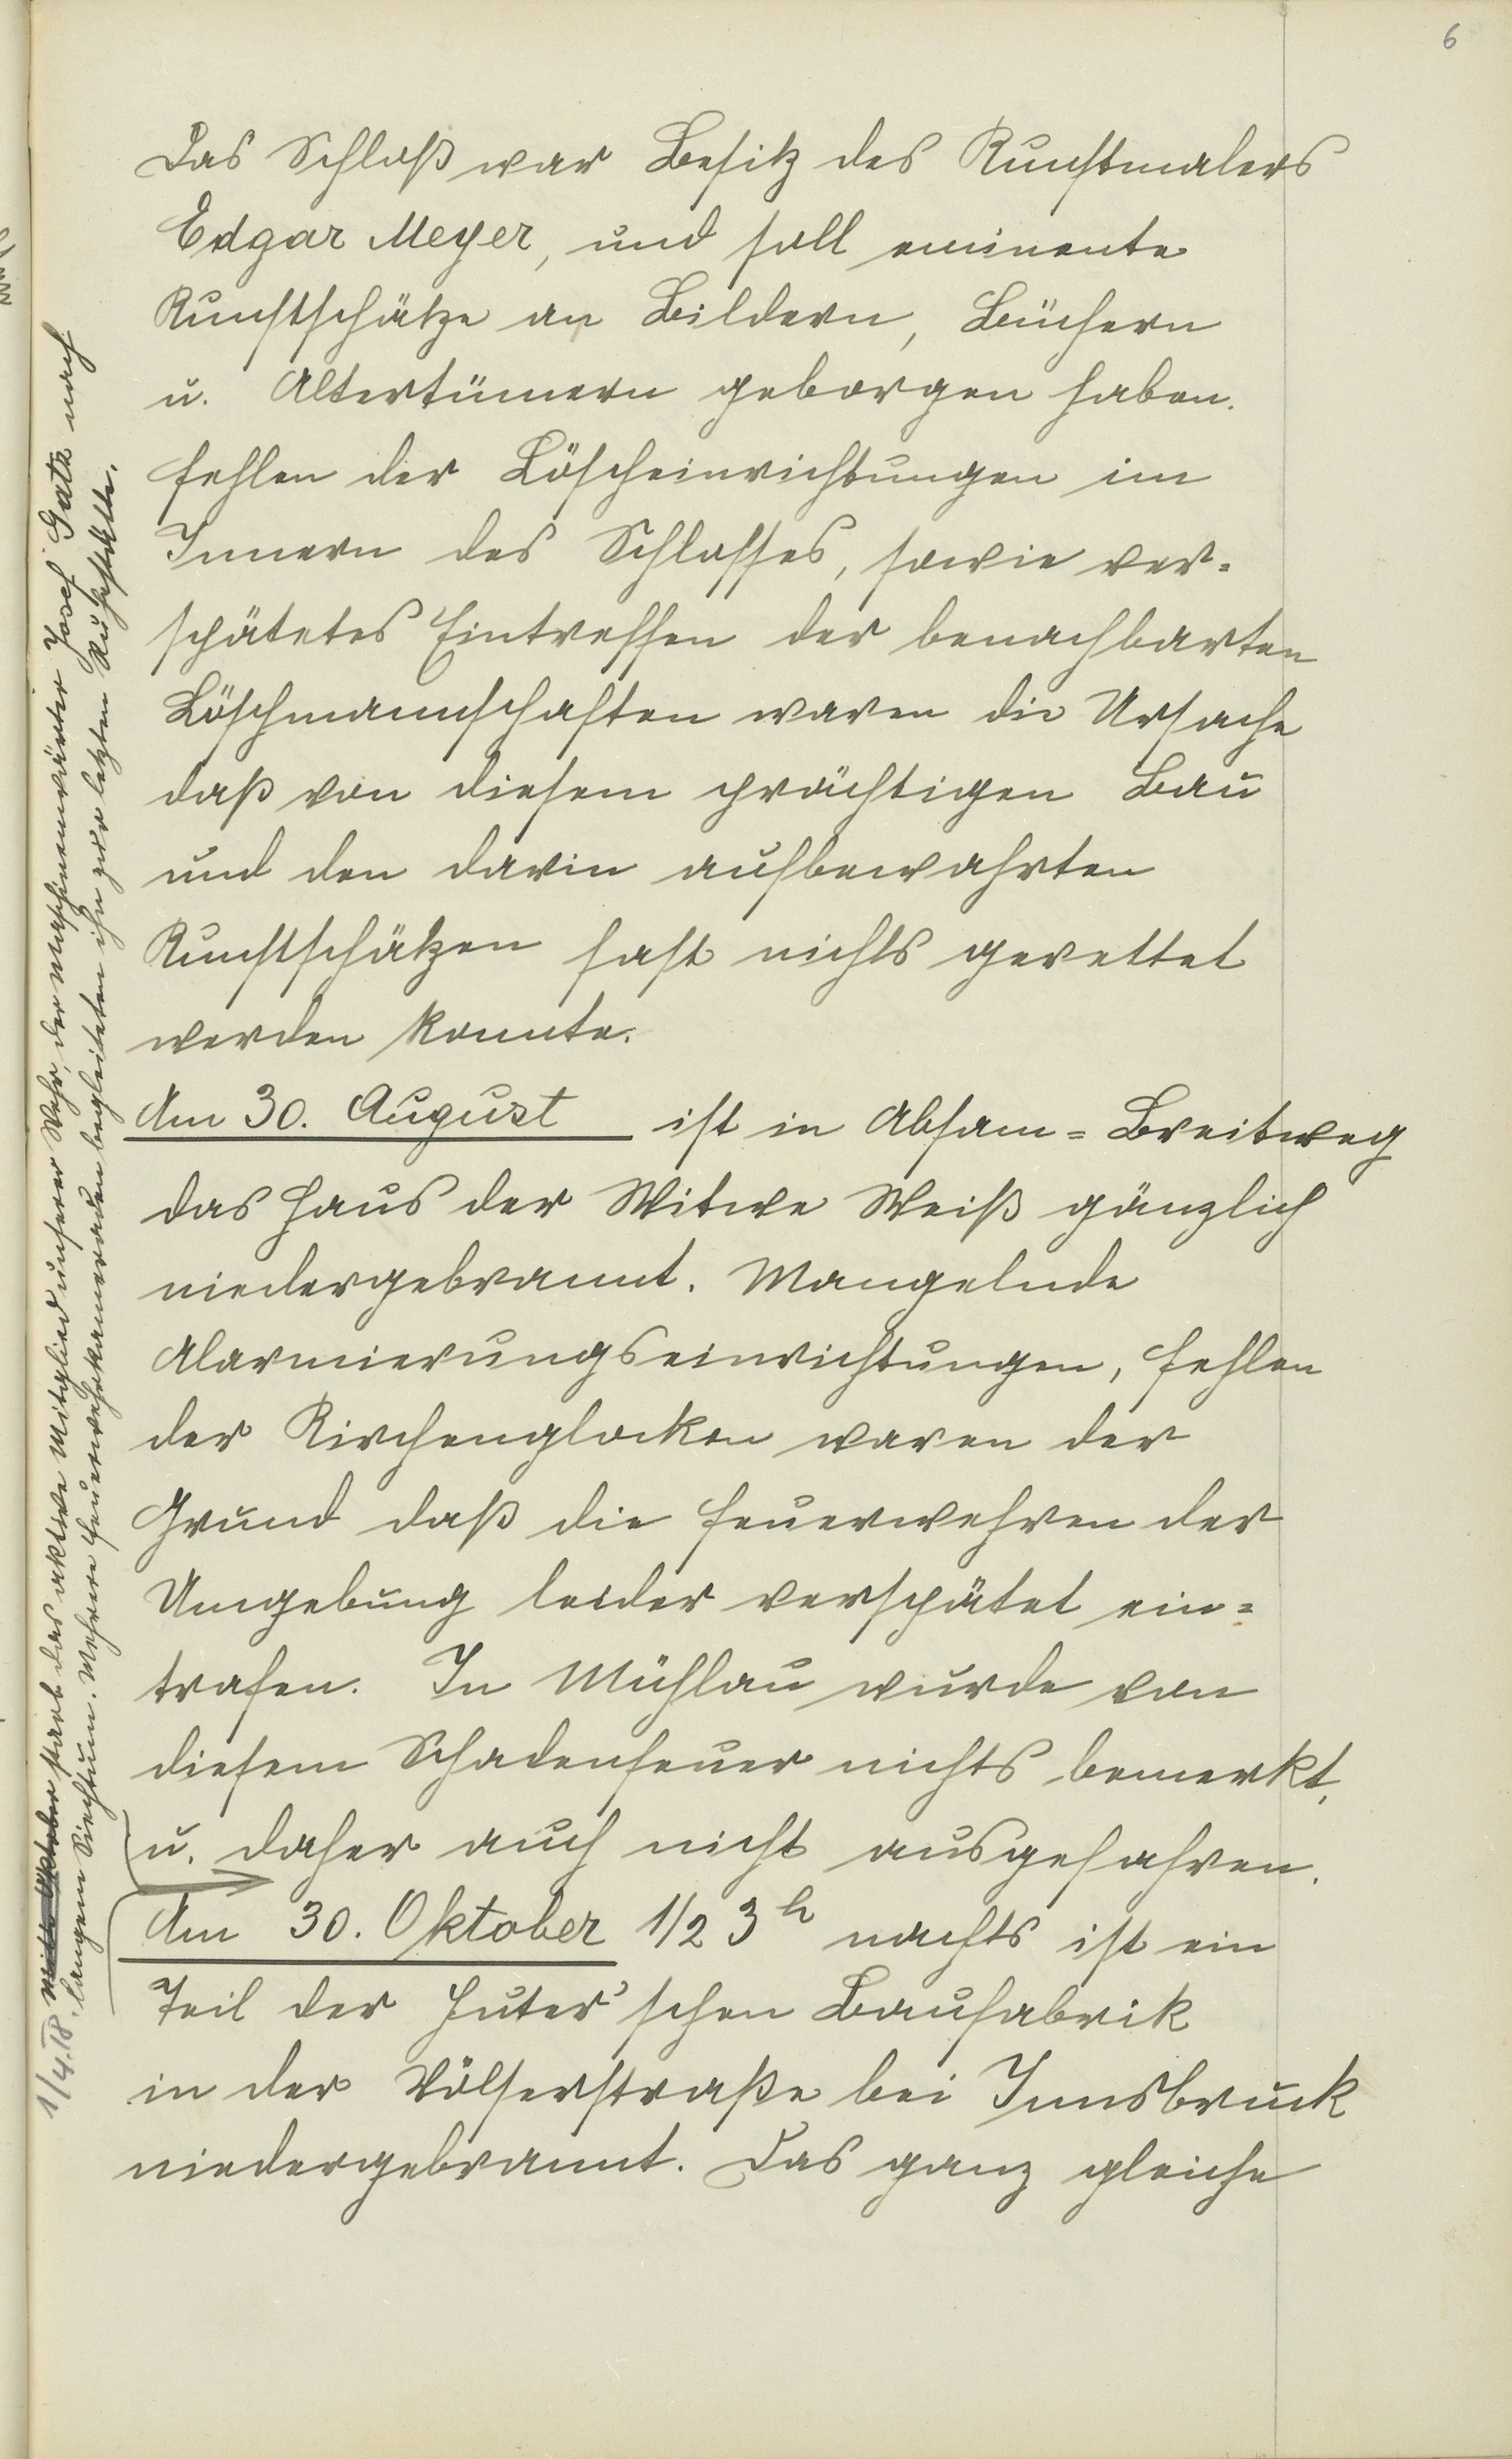 6
Das Schloß war Besitz des Kunstmalers
Edgar Meyer, und soll eminente
Kunstschätze an Bildern, Büchern
u. Altertümern geborgen haben.
Fehlen der Löscheinrichtungen im
Innern des Schlosses, sowie ver-
spätetes Eintreffen der benachbarten
Löschmannschaften waren die Ursache
daß von diesem prächtigen Bau
und den darin aufbewahrten
Kunstschätzen fast nichts gerettet
werden konnte.
Am 30. August ist in Absam=Breitweg
das Haus der Witwe Weiß gänzlich
niedergebrannt. Mangelnde
Alarmierungseinrichtungen, Fehlen
der Kirchenglocken waren der
Grund daß die Feuerwehren der
Umgebung leider verspätet ein=
trafen. In Mühlau wurde von
diesem Schadenfeuer nichts bemerkt,
u. daher auch nicht ausgefahren.
Am 30. Oktober 1/2 3h nachts ist ein
Teil der Huter'schen Baufabrik
in der Völserstraße bei Innsbruck
niedergebrannt. Das ganz gleiche
1/4.18. Mitte Oktober starb das aktive Mitglied unserer Wehr, der Maschinenwärter Josef Gatt nach
langem Siechtum. Mehrere Feuerwehrkameraden begleiteten ihn zur letzten Ruhestätte.